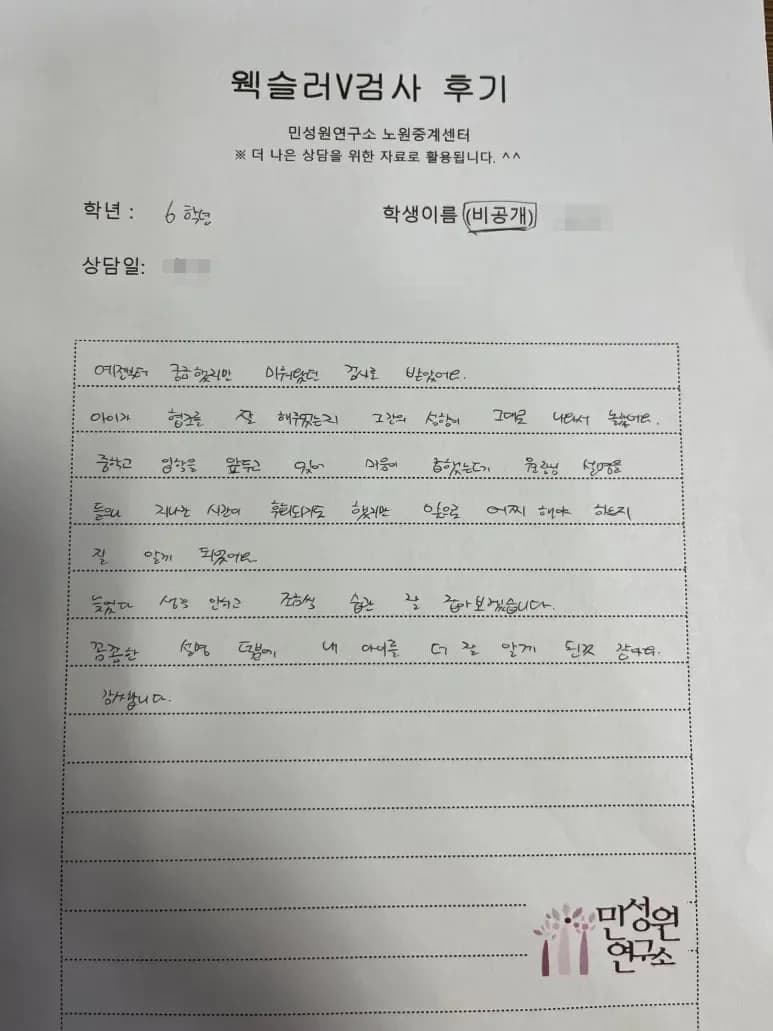 웩슬러V검사 후기
민성원연구소 노원중계센터
※ 더 나은 상담을 위한 자료로 활용됩니다. ^^
학년 : 6학년 학생이름 (비공개)
상담일:
예전부터 궁금했지만 미뤄왔던 검사를 받았어요.
아이가 협조를 잘 해주었는지 그간의 성향이 그대로 나와서 놀랐어요.
중학교 입학을 앞두고 있어 마음이 급했는데 원장님 설명을
들으니 지나간 시간이 후회되기도 했지만 앞으로 어찌 해야 하는지
잘 알게 되었어요
늦었다 생각 안하고 조금씩 습관 잘 잡아보겠습니다.
꼼꼼한 설명 덕분에 내 아이를 더 잘 알게 된것 같아요.
감사합니다.
민성원
연구소